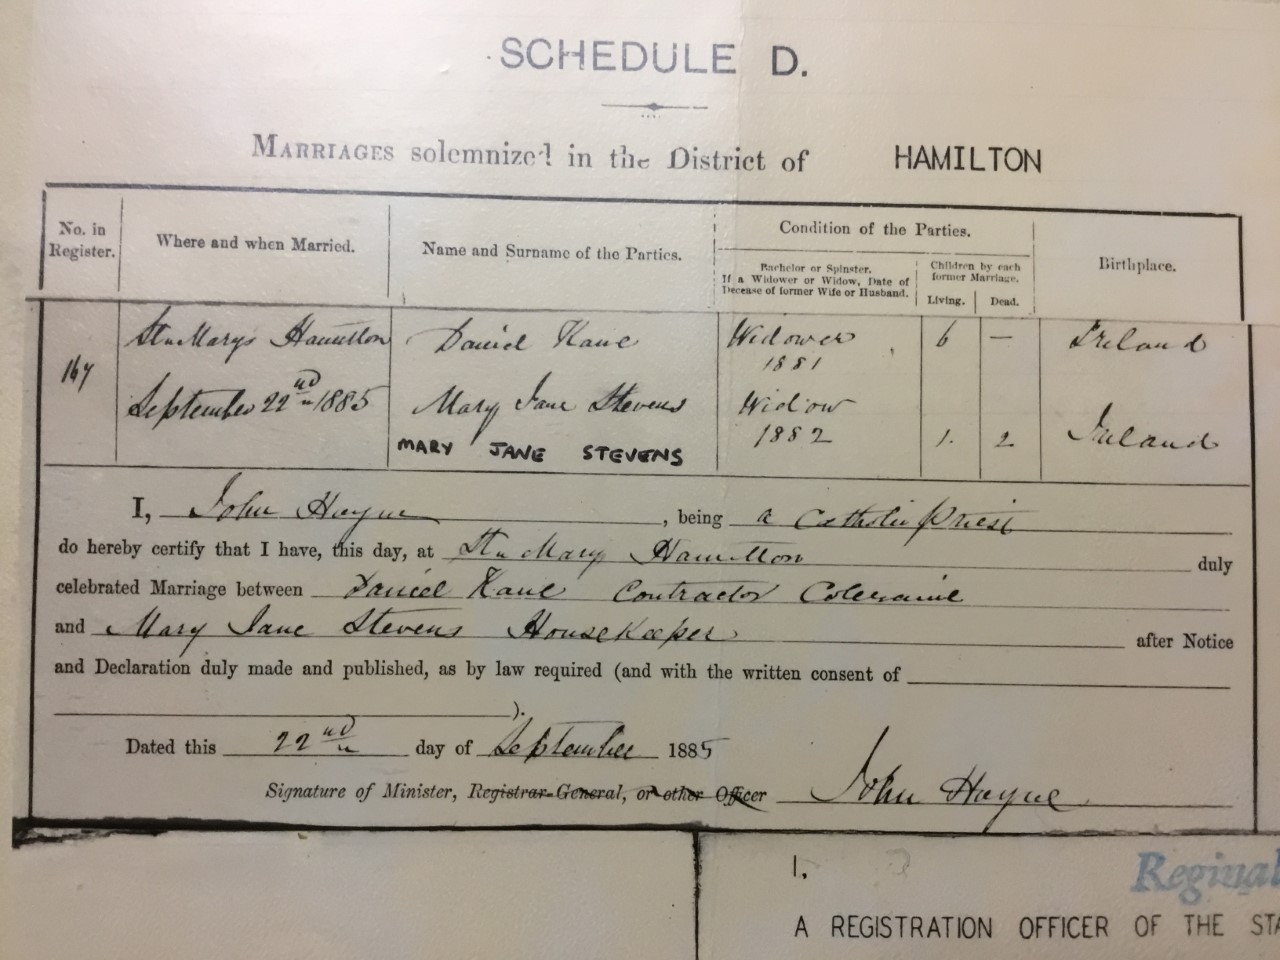 SCHEDULE D.
MARRIAGES solemnized in the District of HAMILTON
No. in Register.
Where and when Married.
Name and Surname of the Parties.
Condition of the Parties.
Bachelor or Spinster.
If a Widower or Widow, Date of
Decease of former Wife or Husband.
Children by each
former Marriage.
Living. Dead.
Birthplace.
167
St Marys Hamilton
September 22nd 1885
Daniel Kane
Widower
1881
6 —
Ireland
Mary Jane Stevens
MARY JANE STEVENS
Widow
1882
1. 2
Ireland
I, John Hayne, being a Catholic Priest
do hereby certify that I have, this day, at St Marys Hamilton duly
celebrated Marriage between Daniel Kane Contractor Coleraine
and Mary Jane Stevens Housekeeper after Notice
and Declaration duly made and published, as by law required (and with the written consent of
).
Dated this 22nd day of September 1885
Signature of Minister, Registrar-General, or other Officer John Hayne
I,
A REGISTRATION OFFICER OF THE